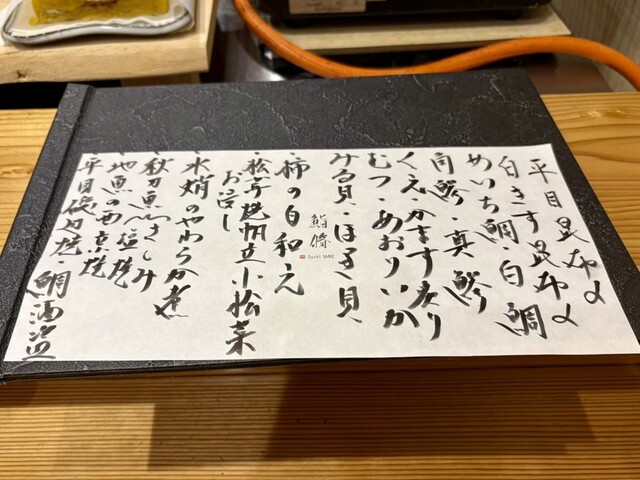 平目昆布〆
白きす昆布〆
めいち鯛 白鯛
角鯵・真鯵
くえ・かます炙り
むつ・あおりいか
みる貝・ほっき貝、
鮨 脩
Sushi SHU
・柿の白和え
・松茸 焼帆立 小松菜
お浸し
・水蛸のやわらか煮
・秋刀魚 さしみ 塩焼
・地魚の西京焼
・平目磯辺焼 鯛酒盗